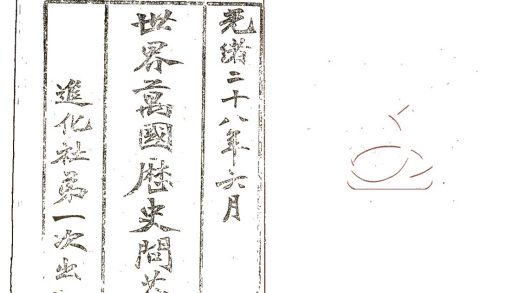 光緒二十八年六月
世界萬國歷史問答
進化社第一次出